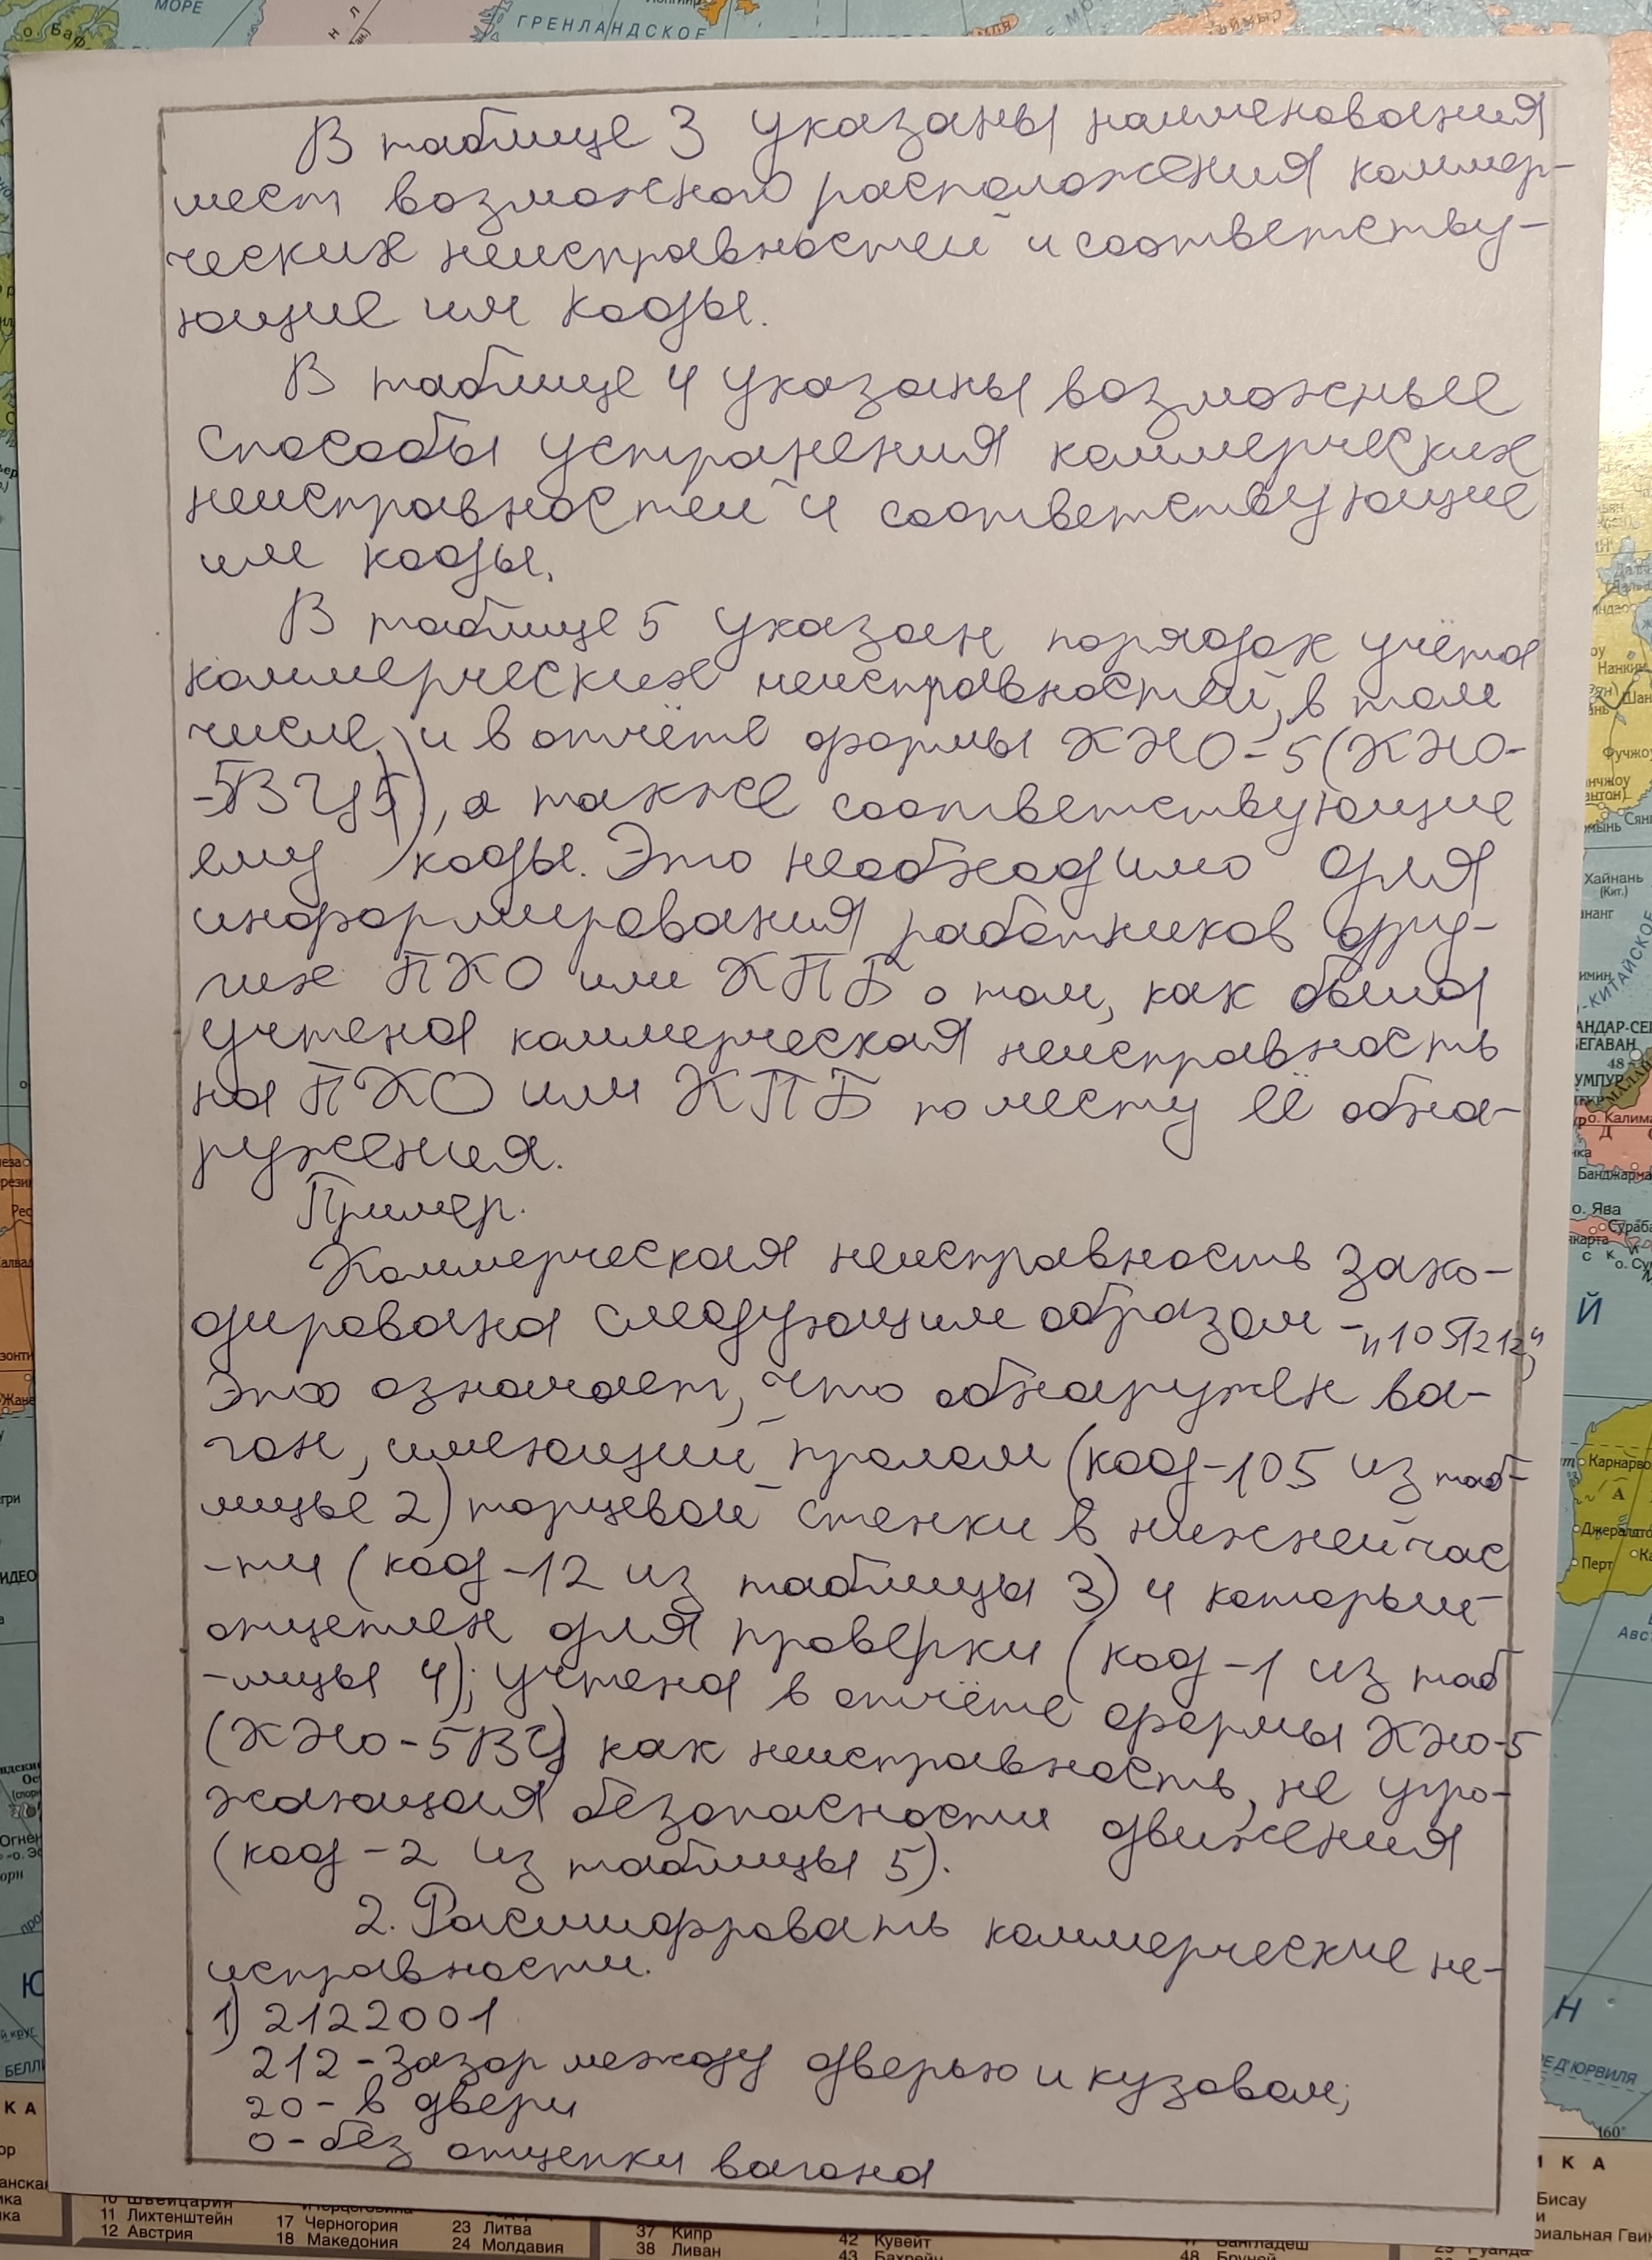 В таблице 3 указаны наименования
мест возможного расположения коммер-
ческих неисправностей и соответству-
ющие им коды.
В таблице 4 указаны возможные
способы устранения коммерческих
неисправностей и соответствующие
им коды.
В таблице 5 указан порядок учёта
коммерческих неисправностей, в том
числе и в отчёте формы КНО-5 (КНО-
-5ВЦ), а также соответствующие
ему коды. Это необходимо для
информирования работников дру-
гих ПКО или КПБ о том, как была
учтена коммерческая неисправность
на ПКО или КПБ по месту её обна-
ружения.
Пример.
Коммерческая неисправность зако-
дирована следующим образом -
Это означает, что обнаружен ва-
гон, имеющий пролом (код-105 из таб-
лицы 2) торцевой стенки в нижней час
-ти (код-12 из таблицы 3) и который
отцеплен для проверки (код-1 из таб
-лицы 4); учтена в отчёте формы КНО-5
(КНО-5ВЦ) как неисправность, не угро-
жающая безопасности движения
(код-2 из таблицы 5).
2. Расшифровать коммерческие не-
исправности.
1) 2122001
212-Зазор между дверью и кузовом;
20- в двери
0-без отцепки вагона
МОРЕ
ГРЕНЛАНДСКОЕ
о. Баф
Нанкин
Фучжоу
Хайнань
(Кит.)
48
о. Калима
Банджарма
о. Ява
Й
Карнарво
А
Перт
Н
160°
Бисау
11 Лихтенштейн
12 Австрия
17 Черногория
18 Македония
23 Литва
24 Молдавия
37 Кипр
38 Ливан
42 Кувейт
43 Бахрейн
48 Бруней